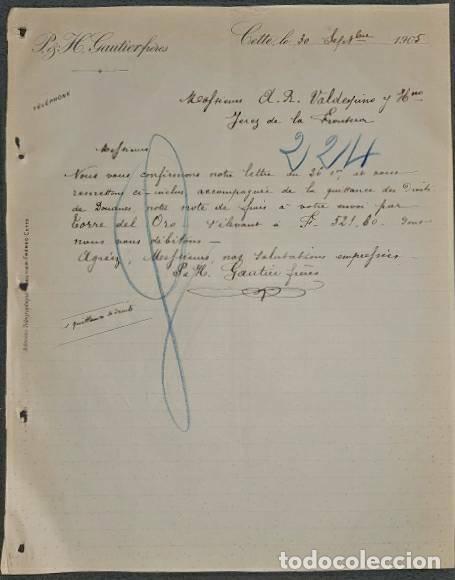 P. & H. Gautier frères
Cette, le 30 Septbre 1905
TÉLÉPHONE
Messieurs A. R. Valdespino y Hno
Jerez de la Frontera
Messieurs
224
Nous vous confirmons notre lettre du 26 ct et vous
remettons ci-inclus accompagnée de la quittance des Droits
de Douanes notre note de frais à votre envoi par
Torre del Oro s'élevant à F. 521,60 dont
nous vous débitons —
Agréez, Messieurs, nos salutations empressées
P & H. Gautier frères
1 quittance de droits
Adresse Télégraphique: FRÈRES-CETTE
todocoleccion
todocoleccion.net